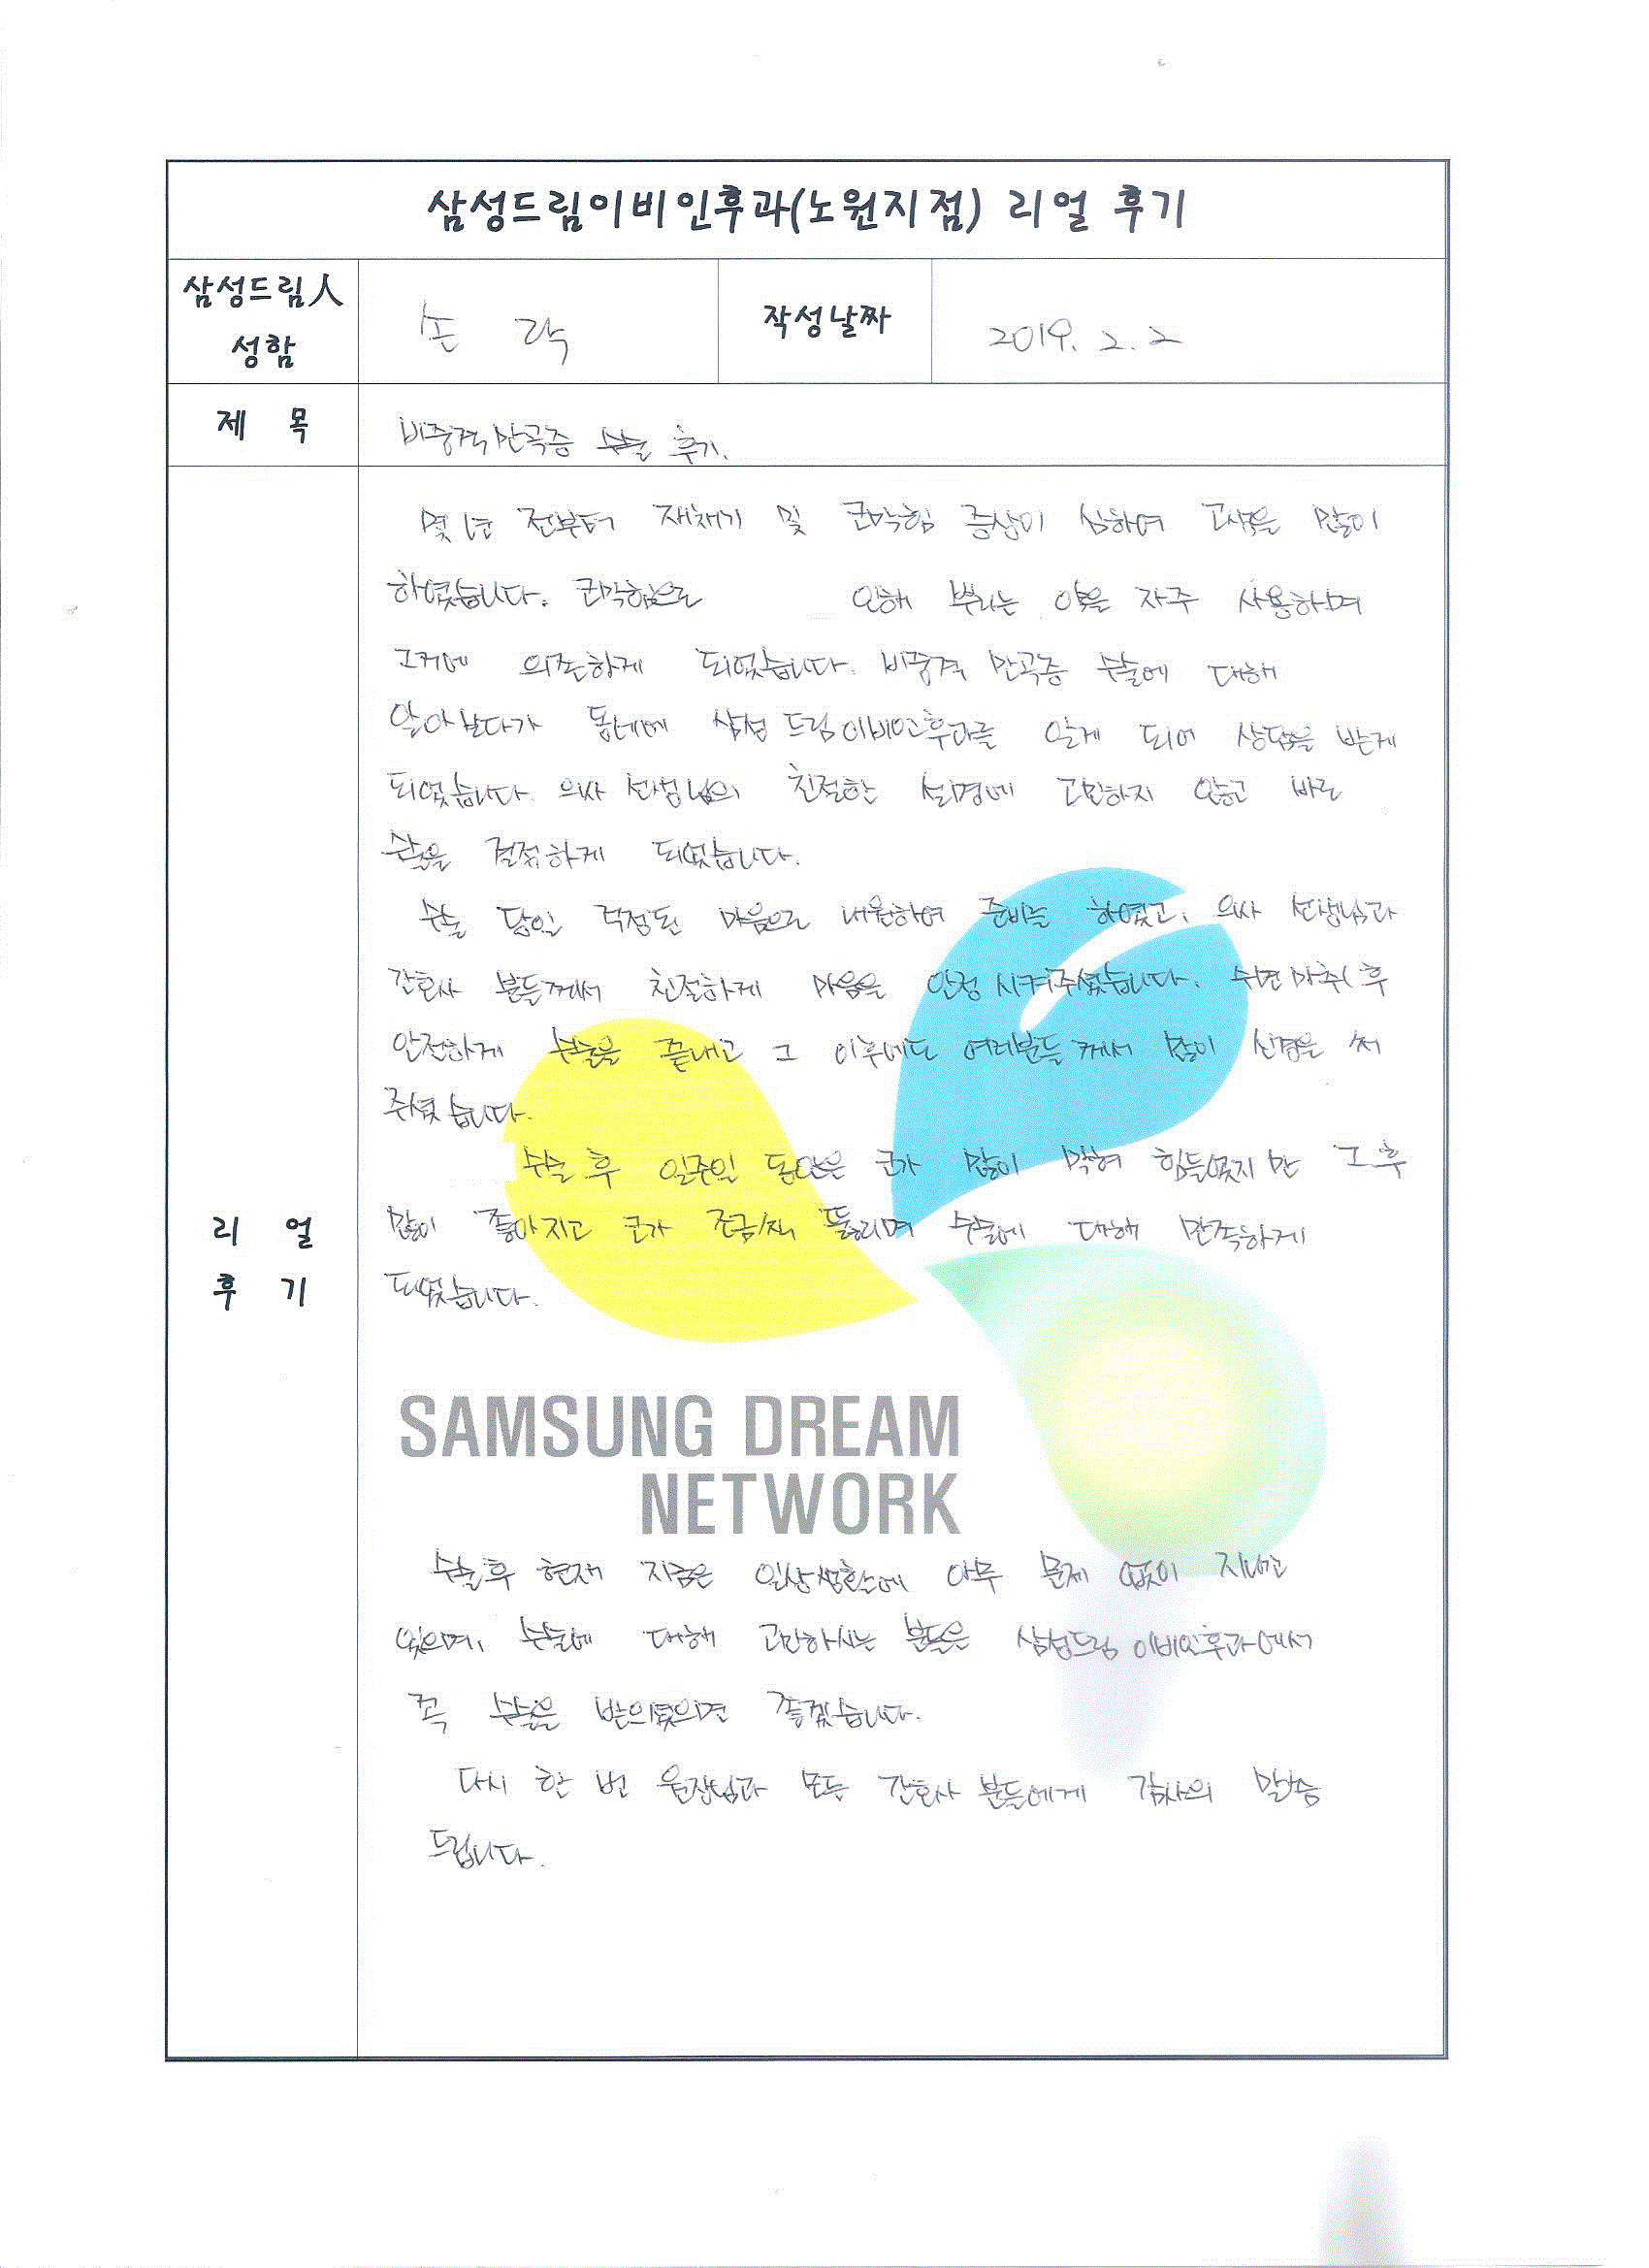 삼성드림이비인후과(노원지점) 리얼 후기
삼성드림人
성함
손 락
작성날짜
2019. 2. 2
제 목
비중격만곡증 수술 후기.
몇 년 전부터 재채기 및 코막힘 증상이 심하여 고생을 많이
하였습니다. 코막힘으로 인해 뿌리는 약을 자주 사용하며
그거에 의존하게 되었습니다. 비중격 만곡증 수술에 대해
알아보다가 동네에 삼성드림이비인후과를 알게 되어 상담을 받게
되었습니다. 의사 선생님의 친절한 설명에 고민하지 않고 바로
수술을 결정하게 되었습니다.
수술 당일 걱정된 마음으로 내원하여 준비를 하였고, 의사 선생님과
간호사 분들께서 친절하게 마음을 안정시켜주셨습니다. 수면마취 후
안전하게 수술을 끝내고 그 이후에도 여러분들께서 많이 신경을 써
주셨습니다.
수술 후 일주일 동안은 코가 많이 막혀 힘들었지만 그 후
많이 좋아지고 코가 조금씩 뚫리며 수술에 대해 만족하게
되었습니다.
리 얼
후 기
SAMSUNG DREAM
NETWORK
수술 후 현재 지금은 일상생활에 아무 문제 없이 지내고
있으며, 수술에 대해 고민하시는 분들은 삼성드림 이비인후과에서
꼭 수술을 받으셨으면 좋겠습니다.
다시 한 번 원장님과 모든 간호사 분들에게 감사의 말씀
드립니다.